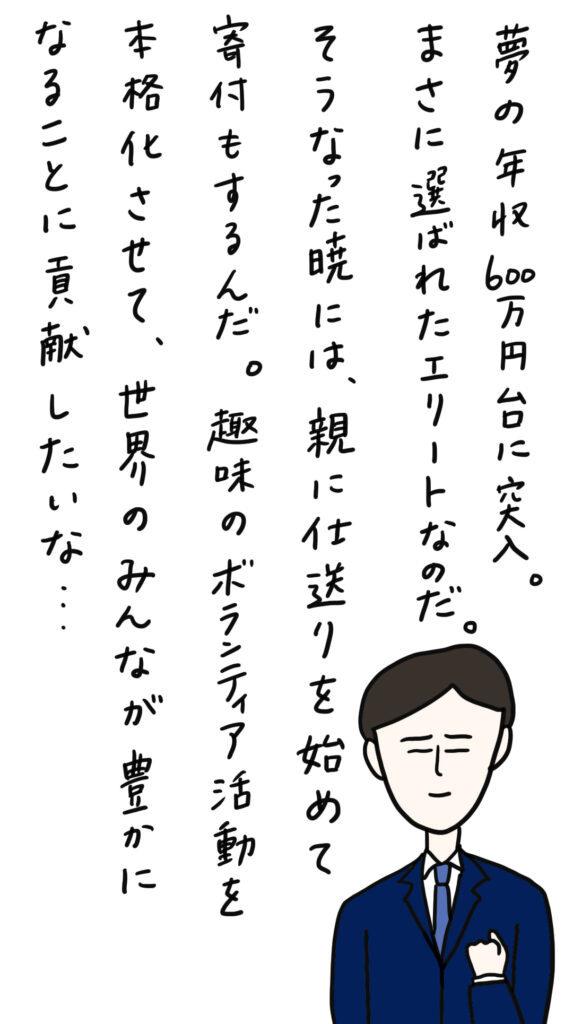 夢の年収600万円台に突入。
まさに選ばれたエリートなのだ。
そうなった暁には、親に仕送りを始めて
寄付もするんだ。趣味のボランティア活動を
本格化させて、世界のみんなが豊かに
なることに貢献したいな…